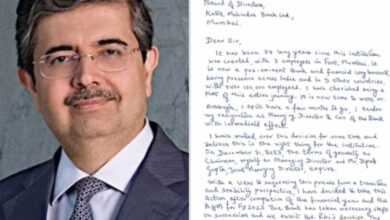 Board of Directors,
Kotak Mahindra Bank Ltd,
Mumbai.
Dear Sir,
It has been 38 long years since this institution
was created, with 3 employees in Fort, Mumbai. It
is now a pre-eminent Bank and financial conglomerate,
having presence across India and in 5 other countries,
with over 100,000 employees. I have cherished being a
part of this entire journey. It is now time to move on.
Although, I still have a few months to go, I tender
my resignation as Managing Director & CEO of the Bank
with immediate effect.
I have mulled over this decision for some time and
believe this is the right thing for the institution.
On December 31, 2023 the terms of yourself as
Chairman, myself as Managing Director and Mr Dipak
Gupta, Joint Managing Director, expire.
With a view to sequencing this process from a transition
and stability perspective, I have decided to take this
action after completion of the financial year and the
AGM for FY 2023. The Bank has taken necessary steps
on succession and we await the RBI's